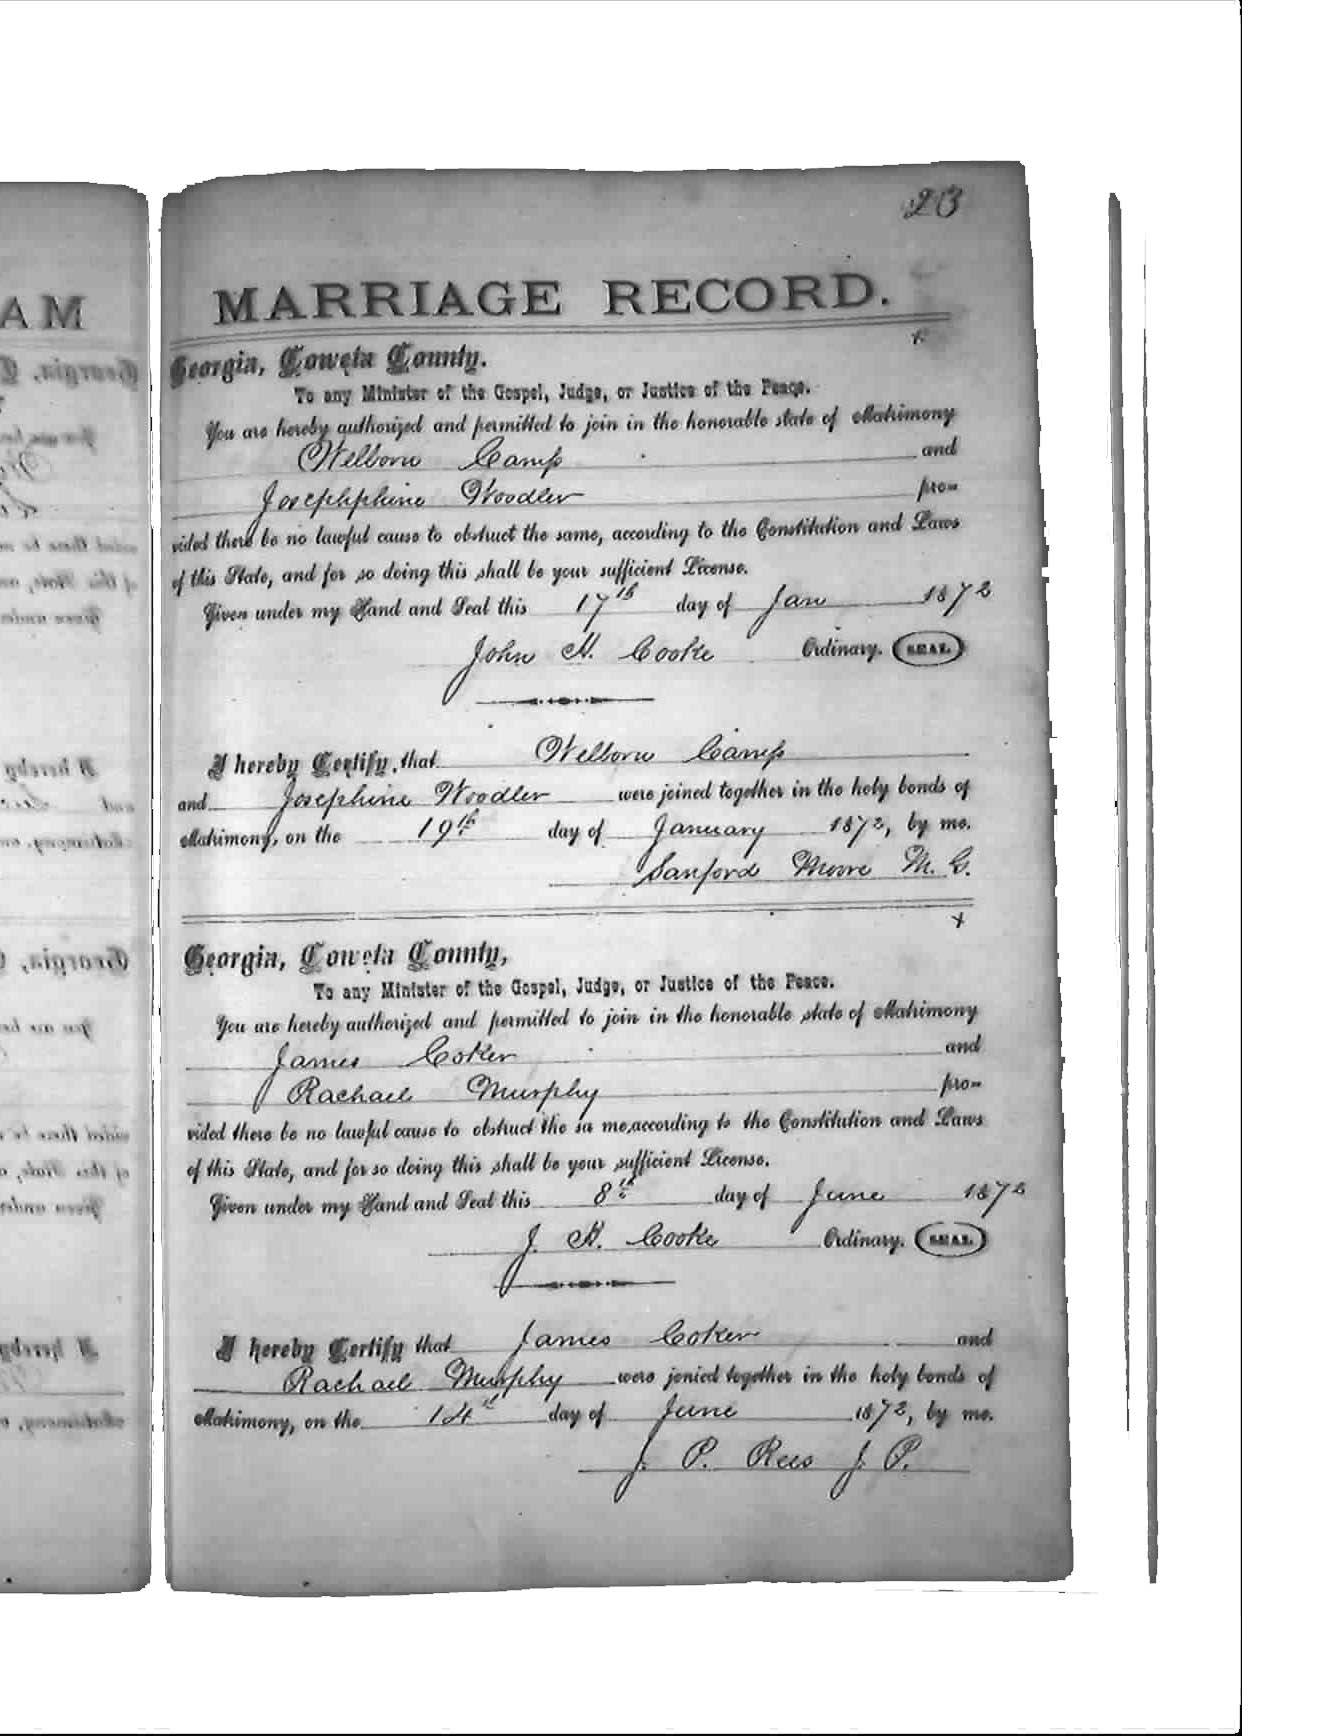 23
MARRIAGE RECORD.
Georgia, Coweta County.
To any Minister of the Gospel, Judge, or Justice of the Peace.
You are hereby authorized and permitted to join in the honorable state of Matrimony
Welborn Camp and
Josephphine Woodler pro-
vided there be no lawful cause to obstruct the same, according to the Constitution and Laws
of this State, and for so doing this shall be your sufficient License.
Given under my Hand and Seal this 17th day of Jan 1872
John H. Cooke Ordinary. SEAL.
I hereby Certify, that Welborn Camp
and Josephine Woodler were joined together in the holy bonds of
Matrimony, on the 19th day of January 1872, by me.
Sanford Moore M. G.
Georgia, Coweta County,
To any Minister of the Gospel, Judge, or Justice of the Peace.
You are hereby authorized and permitted to join in the honorable state of Matrimony
James Coker and
Rachael Murphy pro-
vided there be no lawful cause to obstruct the sa me, according to the Constitution and Laws
of this State, and for so doing this shall be your sufficient License.
Given under my Hand and Seal this 8th day of June 1872
J. H. Cooke Ordinary. SEAL.
I hereby Certify that James Coker and
Rachael Murphy were jonied together in the holy bonds of
Matrimony, on the 14th day of June 1872, by me.
J. P. Rees J. P.